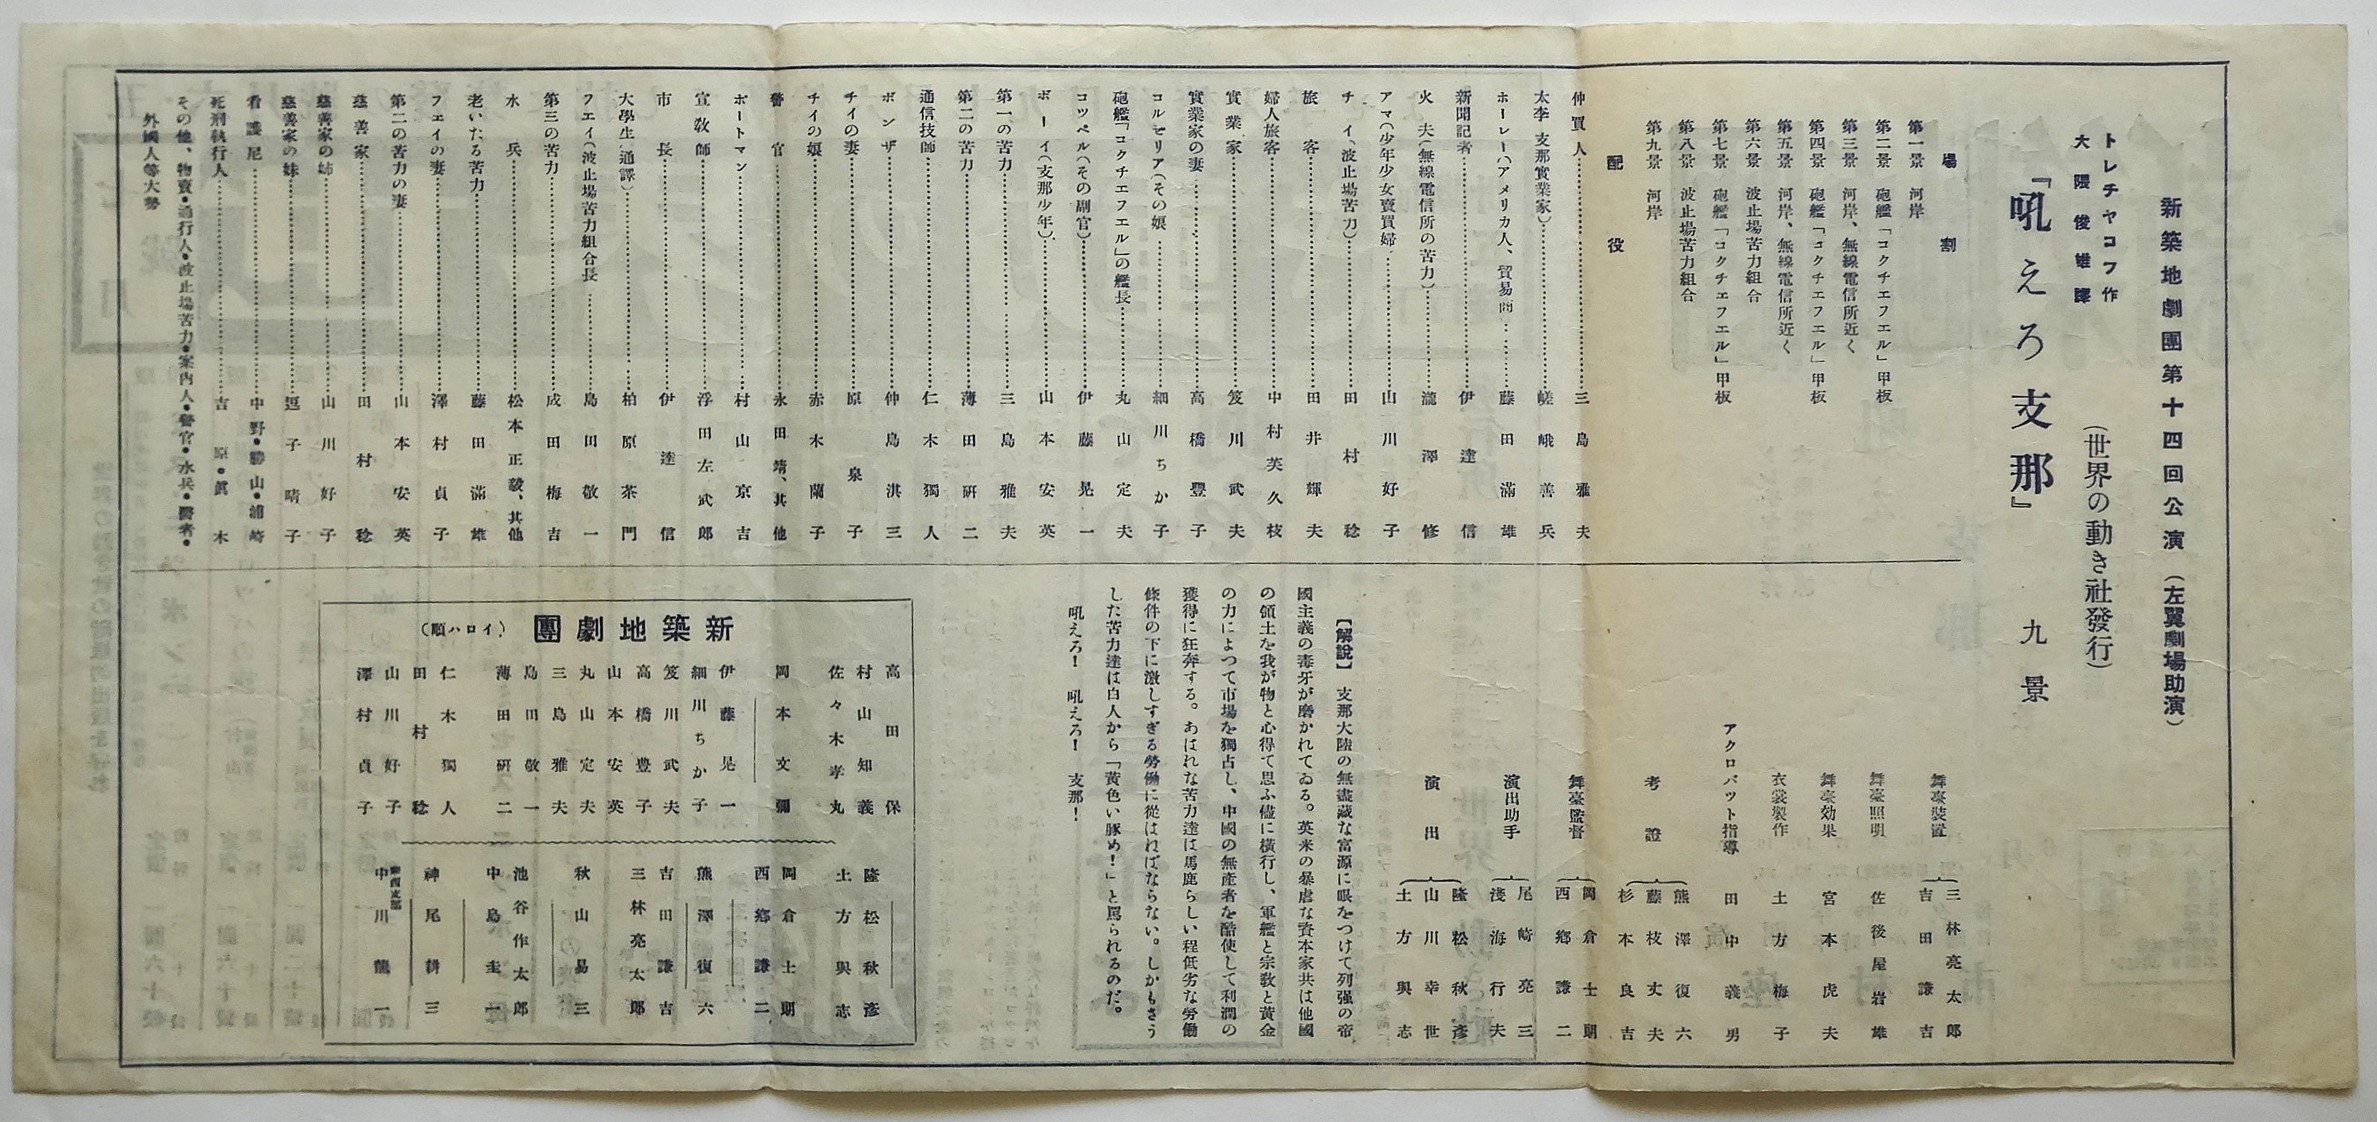 新築地劇團第十四回公演(左翼劇場助演)
トレチヤコフ作
大隈俊雄譯
(世界の動き社發行)
『吼えろ支那』 九景
場割
第一景 河岸
第二景 砲艦「コクチエフエル」甲板
第三景 河岸、無線電信所近く
第四景 砲艦「コクチエフエル」甲板
第五景 河岸、無線電信所近く
第六景 波止場苦力組合
第七景 砲艦「コクチエフエル」甲板
第八景 波止場苦力組合
第九景 河岸
配役
仲買人……三島雅夫
太李(支那實業家)……嵯峨善兵
ホーレー(アメリカ人、貿易商)……藤田滿雄
新聞記者……伊達信
火夫(無線電信所の苦力)……瀧澤修
アマ(少年少女賣買婦)……山川好子
チイ(波止場苦力)……田村稔
旅客……田井輝夫
婦人旅客……中村芙久枝
實業家……笈川武夫
實業家の妻……高橋豐子
コルセリア(その娘)……細川ちか子
砲艦「コクチエフエル」の艦長……丸山定夫
コツペル(その副官)……伊藤晃一
ボーイ(支那少年)……山本安英
第一の苦力……三島雅夫
第二の苦力……薄田研二
通信技師……仁木獨人
ボンザ……仲島淇三
チイの妻……原泉子
チイの娘……赤木蘭子
警官……永田靖、其他
ボートマン……村山京吉
宣敎師……浮田左武郎
市長……伊達信
大學生(通譯)……柏原茶門
フエイ(波止場苦力組合長)……島田敬一
第三の苦力……成田梅吉
水兵……松本正毅、其他
老いたる苦力……藤田滿雄
フエイの妻……澤村貞子
第二の苦力の妻……山本安英
慈善家……田村稔
慈善家の姉……山川好子
慈善家の妹……逗子晴子
看護尼……中野・勝山・浦崎
死刑執行人……吉原・眞木
その他、物賣・通行人・波止場苦力・案内人・警官・水兵・醫者・
外國人等大勢
舞臺裝置 三林亮太郎
吉田謙吉
舞臺照明 佐後屋岩雄
舞臺効果 宮本虎夫
衣裳製作 土方梅子
アクロバツト指導 田中義男
考證 熊澤復六
藤枝丈夫
杉本良吉
舞臺監督 岡倉士朗
西鄕謙二
演出助手 尾崎亮三
淺海行夫
演出 隆松秋彥
山川幸世
土方與志
【解說】 支那大陸の無盡藏な富源に眼をつけて列强の帝
國主義の毒牙が磨かれてゐる。英米の暴虐な資本家共は他國
の領土を我が物と心得て思ふ儘に橫行し、軍艦と宗敎と黃金
の力によつて市場を獨占し、中國の無產者を酷使して利潤の
獲得に狂奔する。あはれな苦力達は馬鹿らしい程低劣な勞働
條件の下に激しすぎる勞働に從はねばならない。しかもさう
した苦力達は白人から「黃色い豚め!」と罵られるのだ。
吼えろ! 吼えろ! 支那!
新築地劇團 (イロハ順)
高田保
村山知義
佐々木孝丸
岡本文彌
伊藤晃一
細川ちか子
笈川武夫
高橋豐子
山本安英
丸山定夫
三島雅夫
島田敬一
薄田研二
仁木獨人
田村稔
山川好子
澤村貞子
隆松秋彥
土方與志
岡倉士朗
西鄕謙二
熊澤復六
吉田謙吉
三林亮太郎
秋山易三
池谷作太郎
中島圭一
神尾耕三
關西支部
中川龍一